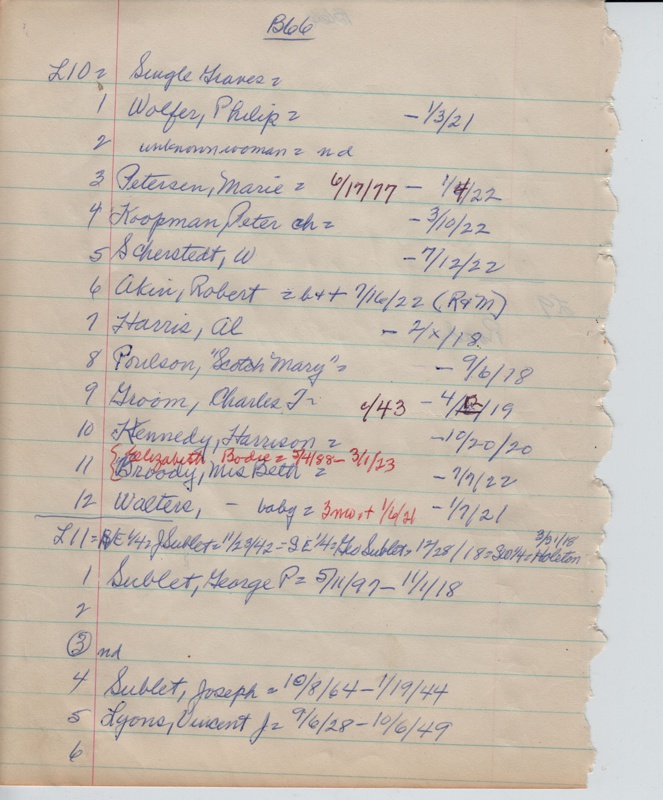 Bl66
L10 = Single Graves =
1 Wolfer, Philip = - 1/3/21
2 unknown woman = nd
3 Petersen, Marie = 6/17/77 - 1/4/22
4 Koopman, Peter ch = - 3/10/22
5 Scherstedt, W - 7/12/22
6 Akin, Robert = b + 7/16/22 (R+M)
7 Harris, Al - 2/x/18
8 Poulson, "Scotch Mary" = - 9/6/18
9 Groom, Charles J = c/43 - 4/13/19
10 Kennedy, Harrison = - 10/20/20
Elizabeth Bodie = 5/4/88 - 3/1/23
11 Broody, Mrs Beth = - 2/9/22
12 Walters, - baby = 3mo. + 1/6/21 - 1/7/21
3/31/18
L11 = 1/4 = J Sublet = 11/23/42 = S.E 1/4 = Geo Sublet = 12/28/18 = 1/4 = Holeton
1 Sublet, George P = 5/11/97 - 11/1/18
2
3 nd
4 Sublet, Joseph = 10/8/64 - 1/19/44
5 Lyons, Vincent J = 9/6/28 - 10/6/49
6